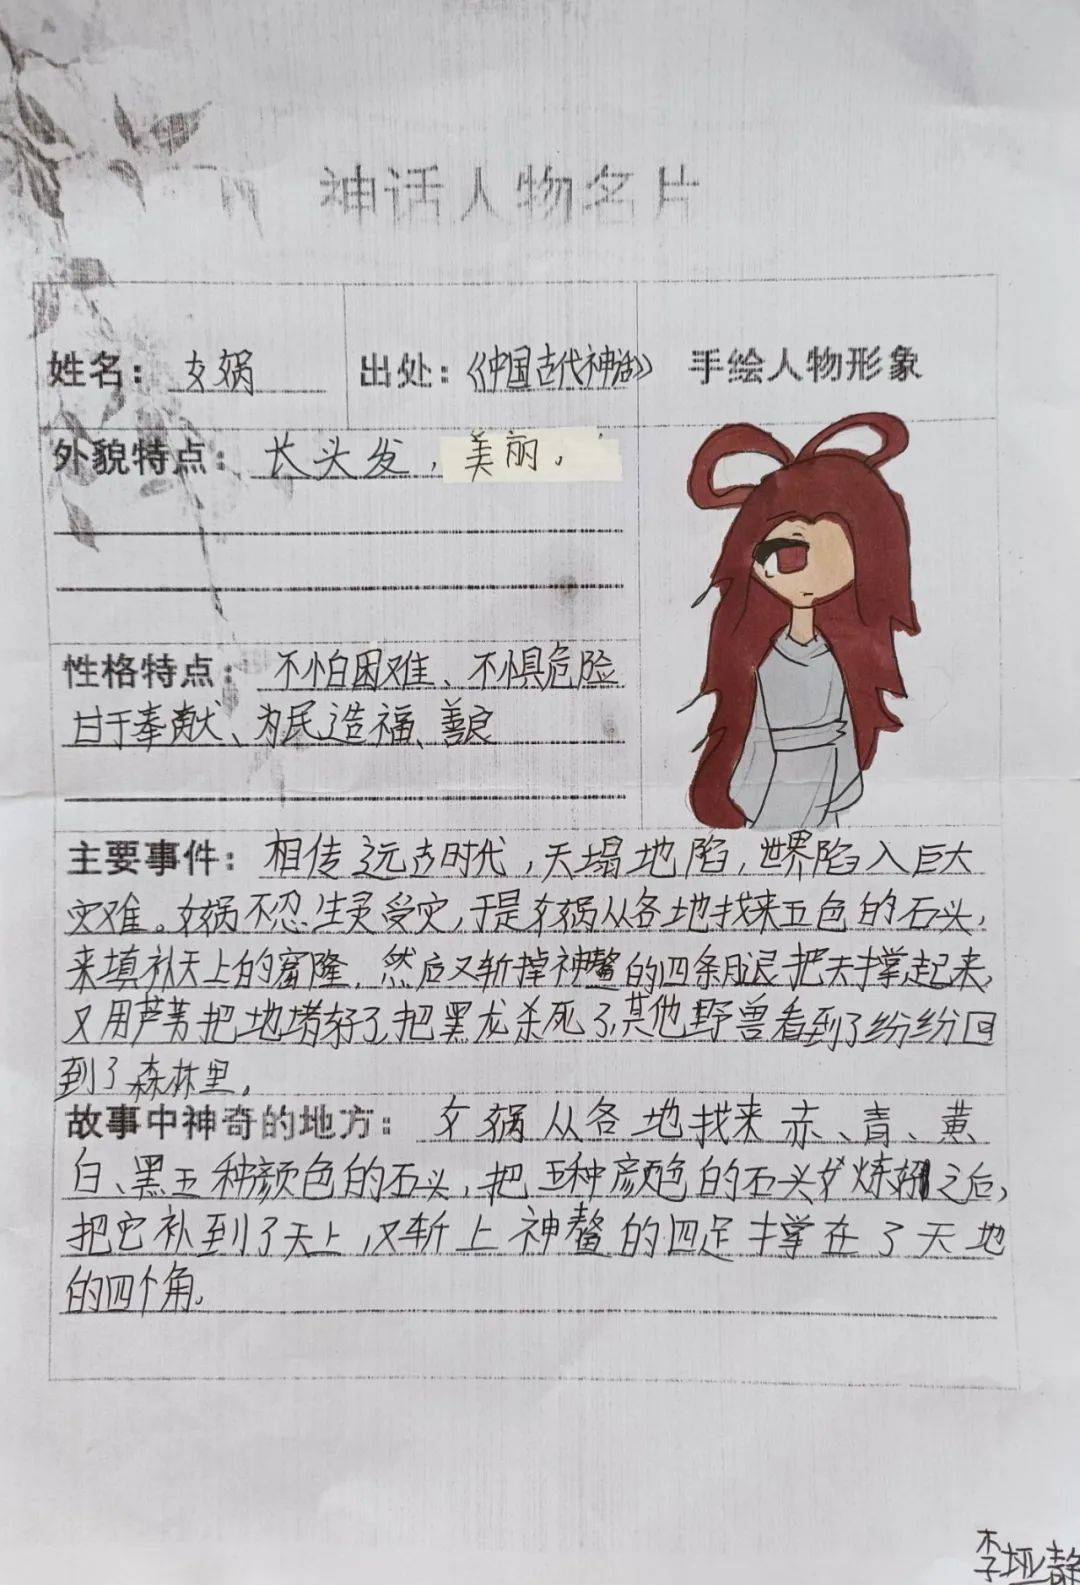 神话人物名片
姓名：女娲
出处：《中国古代神话》
手绘人物形象
外貌特点：长头发，美丽。
性格特点：不怕困难、不惧危险
甘于奉献、为民造福、善良
主要事件：相传远古时代，天塌地陷，世界陷入巨大
灾难。女娲不忍生灵受灾，于是女娲从各地找来五色的石头，
来填补天上的窟隆，然后又斩掉神鳌的四条腿把天撑起来，
又用芦苇把地堵好了，把黑龙杀死了，其他野兽看到了纷纷回
到了森林里。
故事中神奇的地方：女娲从各地找来赤、青、黄
白、黑五种颜色的石头，把五种颜色的石头炼之后，
把它补到了天上，又斩上神鳌的四足撑在了天地
的四个角。
李垭静